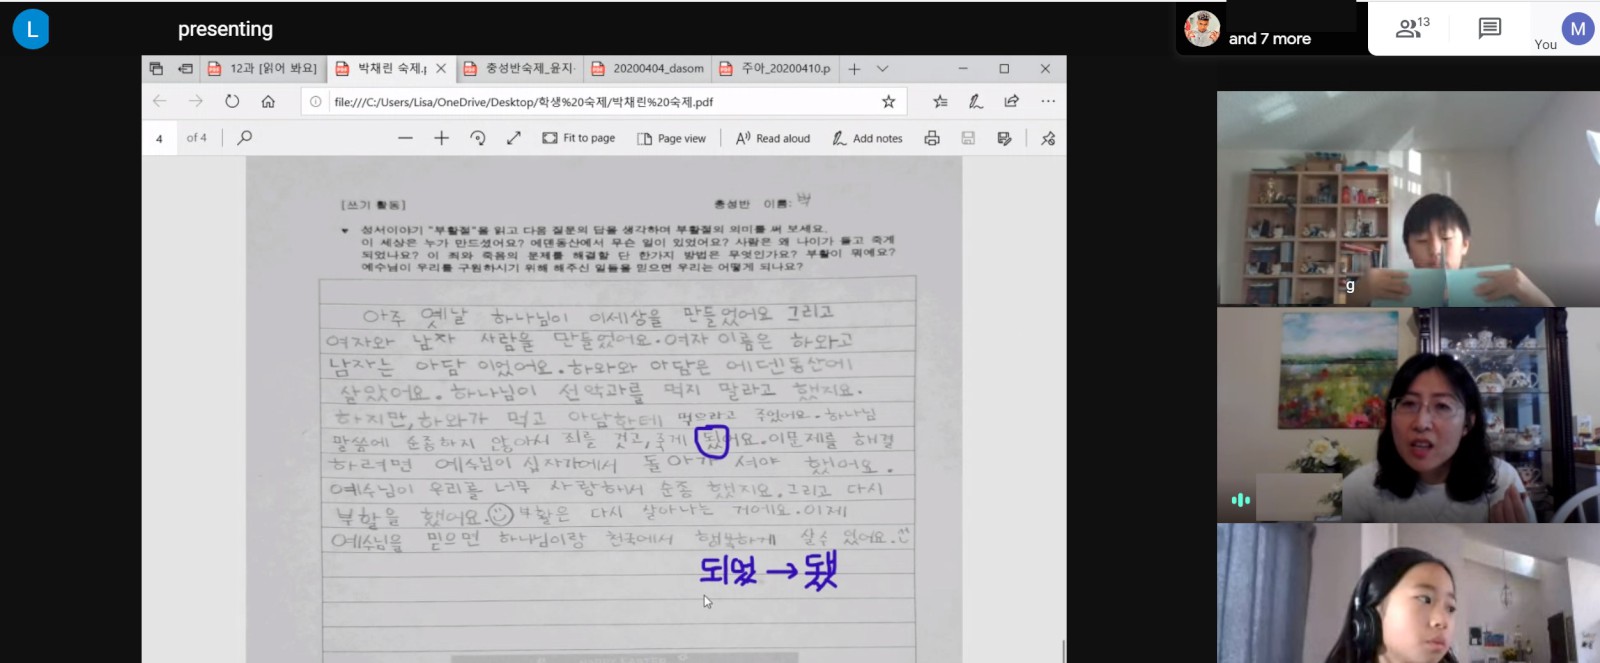 L
presenting
and 7 more
13
You
M
12과 [읽어 봐요]
박채린 숙제.p
충성반숙제_윤지
20200404_dasom
주아_20200410.p
file:///C:/Users/Lisa/OneDrive/Desktop/학생%20숙제/박채린%20숙제.pdf
4 of 4
Fit to page
Page view
Read aloud
Add notes
[쓰기 활동]
충성반 이름: 박
성서이야기 "부활절"을 읽고 다음 질문의 답을 생각하며 부활절의 의미를 써 보세요.
이 세상은 누가 만드셨어요? 에덴동산에서 무슨 일이 있었어요? 사람은 왜 나이가 들고 죽게
되었나요? 이 죄와 죽음의 문제를 해결할 단 한가지 방법은 무엇인가요? 부활이 뭐예요?
예수님이 우리를 구원하시기 위해 해주신 일들을 믿으면 우리는 어떻게 되나요?
아주 옛날 하나님이 이세상을 만들었어요 그리고
여자와 남자 사람을 만들었어요. 여자 이름은 하와고
남자는 아담 이었어요. 하와와 아담은 에덴동산에
살았어요. 하나님이 선악과를 먹지 말라고 했지요.
하지만, 하와가 먹고 아담한테 먹으라고 주었어요. 하나님
말씀에 순종하지 않아서 죄를 짓고, 죽게 됬어요. 이문제를 해결
하려면 예수님이 십자가에서 돌아가 셔야 했어요.
예수님이 우리를 너무 사랑하서 순종 했지요. 그리고 다시
부활을 했어요. 부활은 다시 살아나는 거에요. 이제
예수님을 믿으면 하나님이랑 천국에서 행복하게 살수 있어요.
되었→됐
g